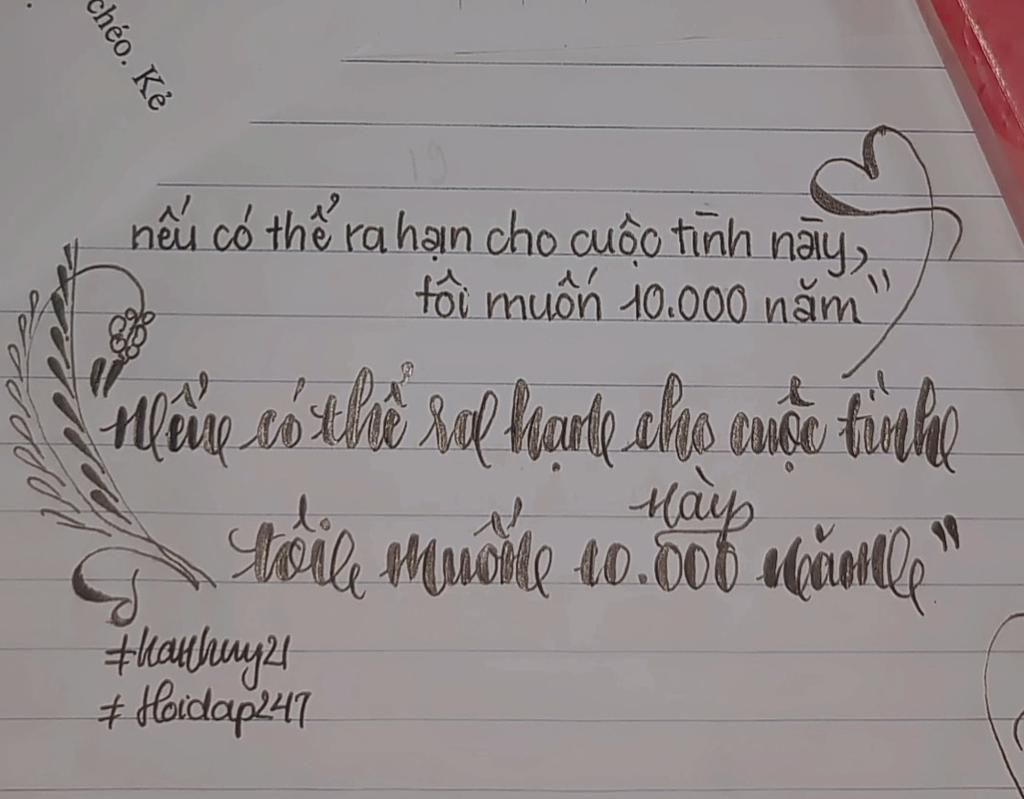 chéo. Kẻ
19
nếu có thể ra hạn cho cuộc tình này,
tôi muốn 10.000 năm"
"Nếu có thể ra hạn cho cuộc tình
này
tôi muốn 10.000 năm"
#katthuy21
#Hoidap247